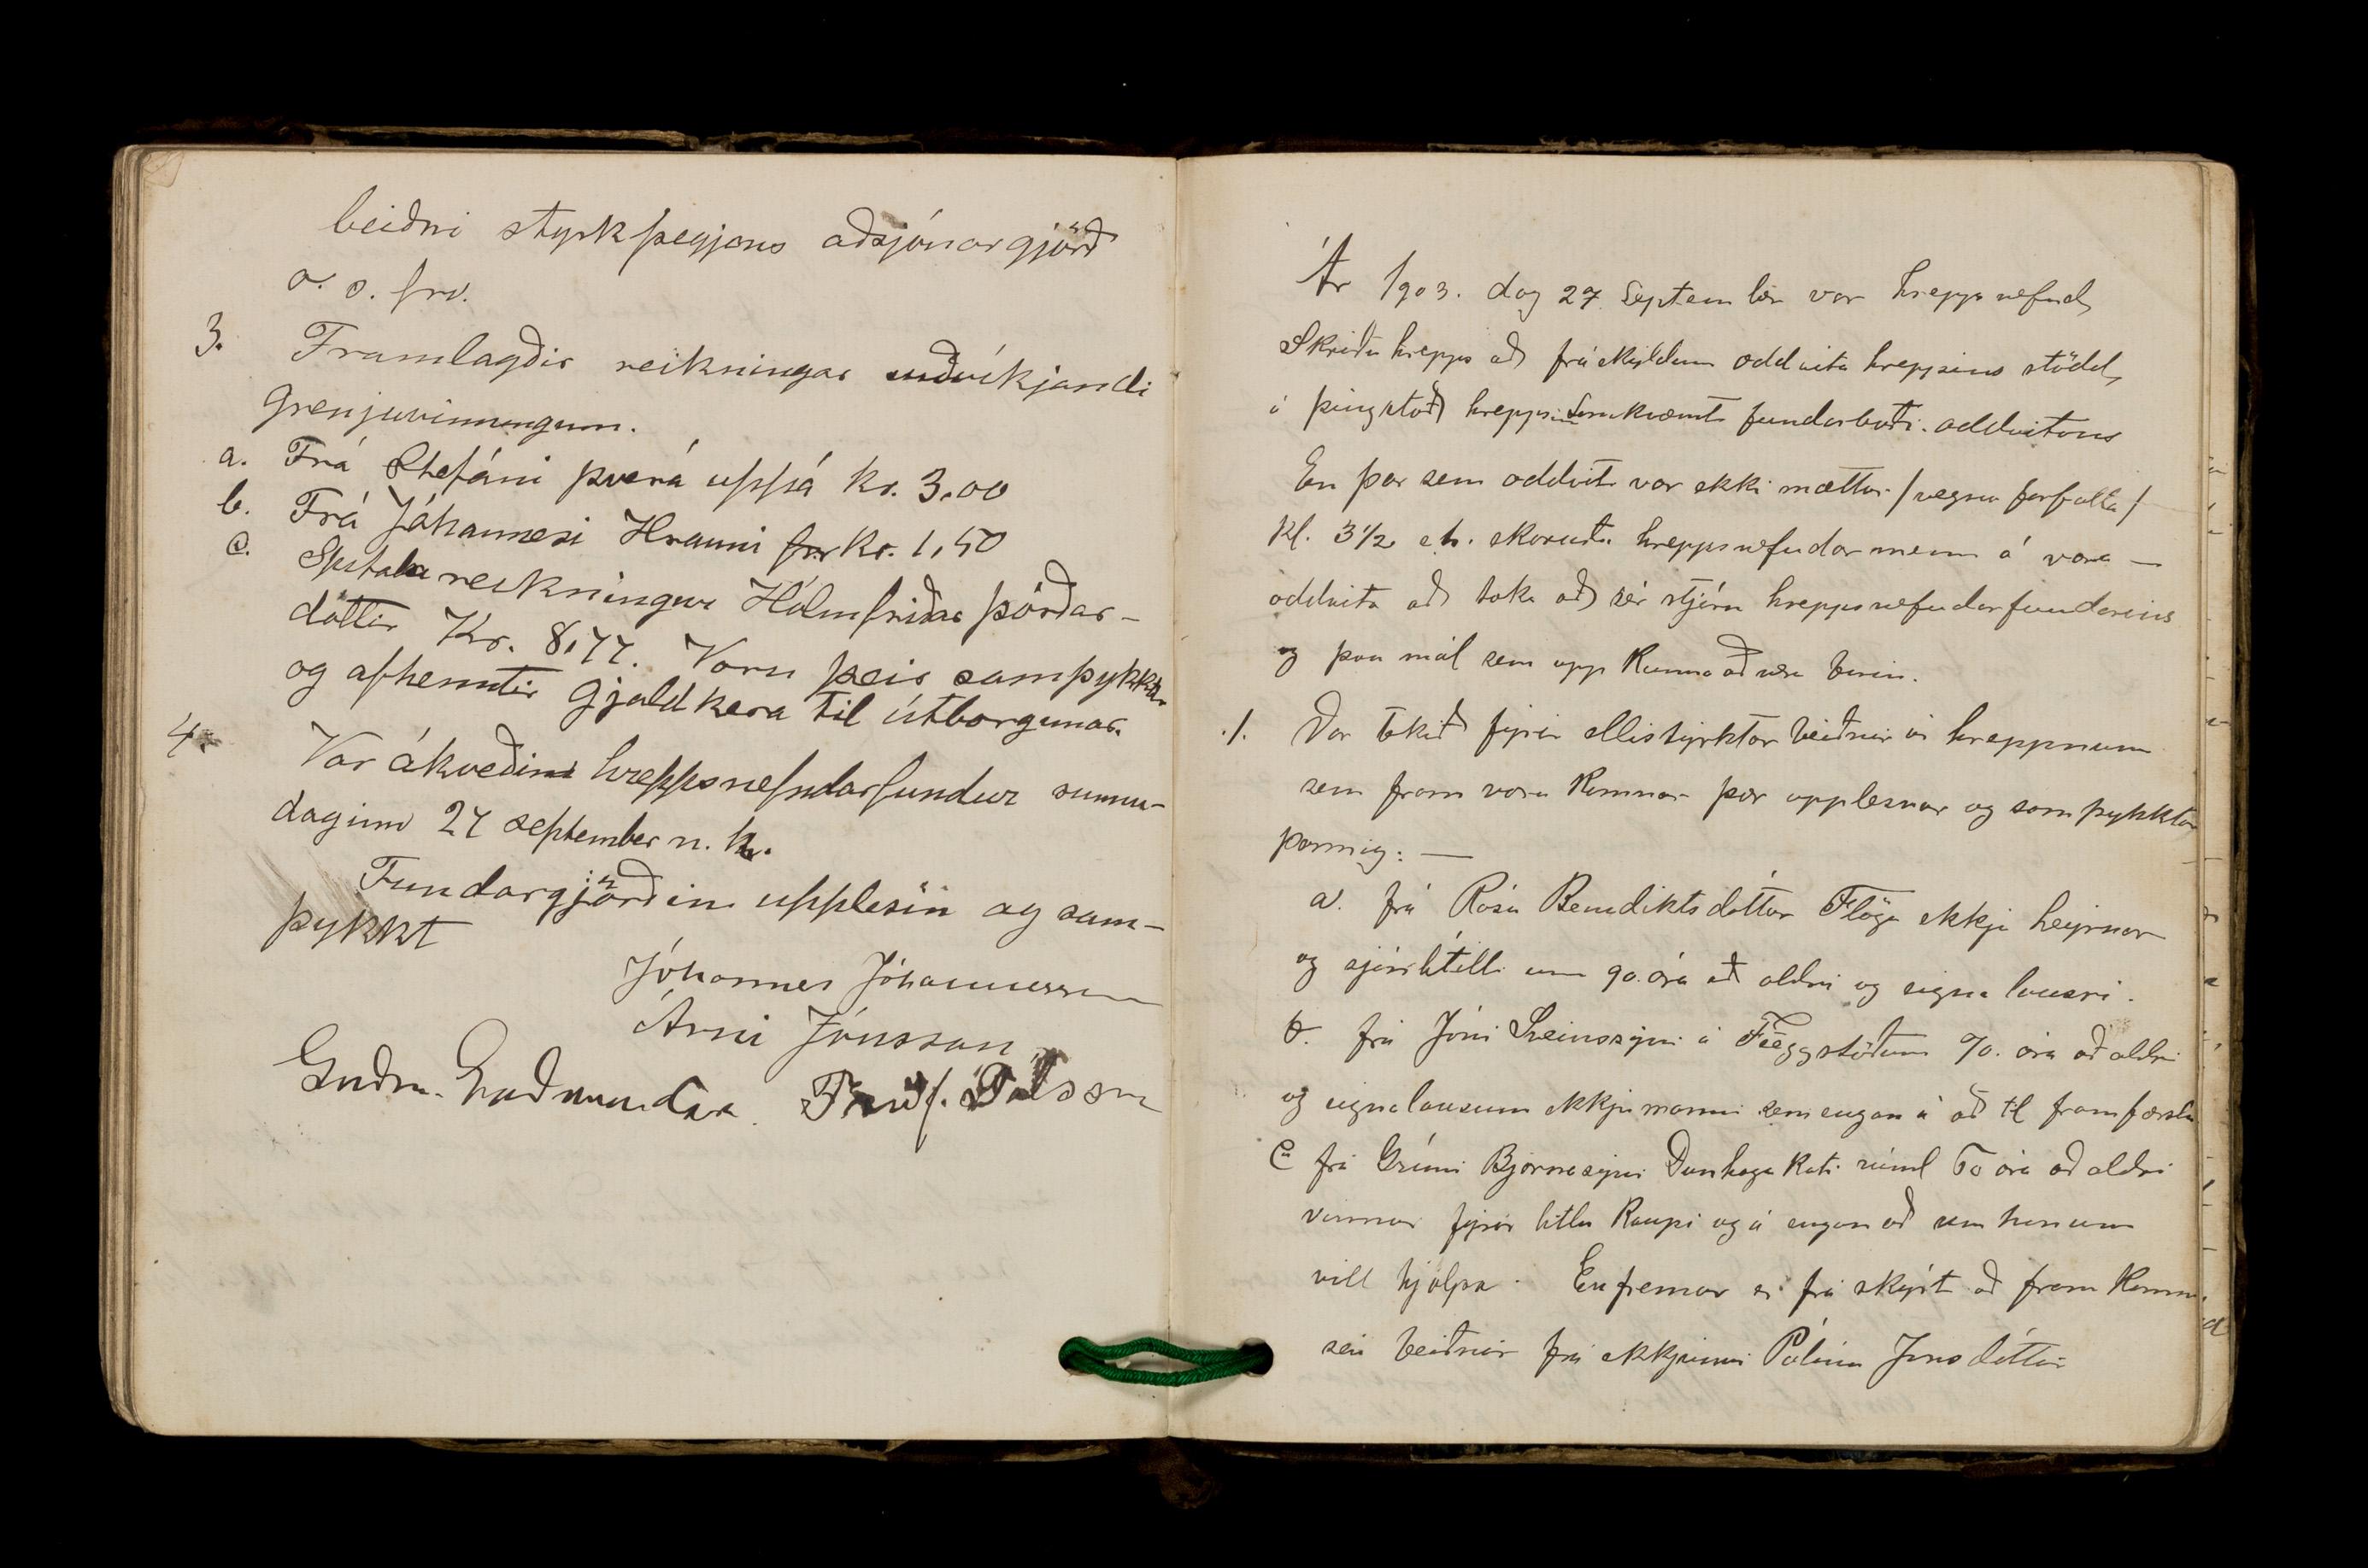 beiðni styrkþegjans aðsjónargjörð
o. s. frv.
3. Framlagðir reikningar viðvíkjandi
Grenjuvinningum.
a. Frá Stefáni þverá uppá kr. 3,00
b. Frá Jóhannesi Hrauni kr. 1,50
c. Spítala reikningur Hólmfríðar þórðar-
dóttir Kr. 8,77. Voru þeir samþykktir
og afhenntir Gjaldkera til útborgunar.
4. Var ákveðin hreppsnefndarfundur sunnu-
daginn 27 september n. k.
Fundargjörðin upplesin og sam-
þykkt
Jóhannes Jóhannesson
Árni Jónsson
Guðm. Guðmundss. Pálsson
Ár 1903. dag 27. September var hreppsnefnd
Skriðuhrepps að fráskyldum oddvita hreppsins stödd
á þingstað hreppsins samkvæmt fundarboði oddvitans
En þar sem oddviti var ekki mættur /vegna forfalla/
kl. 3 1/2 e.h. skoruðu hreppsnefndarmenn á vara-
oddvita að taka að sér stjórn hreppsnefndarfundarins
og þau mál sem upp kunna að vera borin.
1. Var tekið fyrir ellistyrktar beiðnir úr hreppnum
sem fram voru komnar þær upplesnar og samþykktar
þannig: —
a. frá Rósu Benediktsdóttur Flögu ekkju heyrnar
og sjónlítilli um 90. ára að aldri og eigna lausri.
b. frá Jóni Sveinssyni á Féeggstöðum 70. ára að aldri
og eignalausum ekkjumanni sem engan á að til framfærslu
c frá Grími Bjornssyni Dunhagakoti rúml 60 ára að aldri
vinnur fyrir litlu kaupi og á engan að sem honum
vill hjálpa. Enfremur er frá skýrt að fram komnar
séu beiðnir frá ekkjunni Pálínu Jónsdóttir